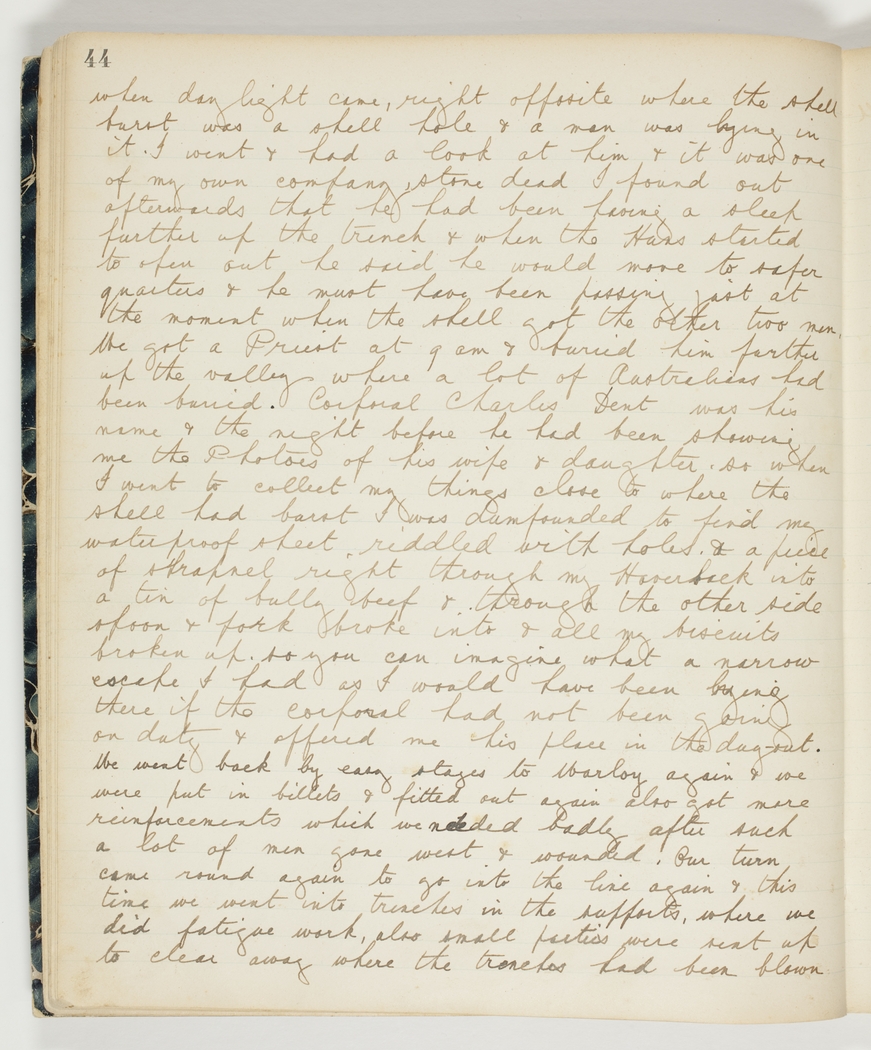 44
when day light came, right opposite where the shell
burst was a shell hole & a man was lying in
it. I went & had a look at him & it was one
of my own company, stone dead I found out
afterwards that he had been having a sleep
further up the trench & when the Huns started
to open out he said he would move to safer
quarters & he must have been passing just at
the moment when the shell got the other two men.
We got a Priest at 9 am & buried him further
up the valley where a lot of Australians had
been buried. Corporal Charles Dent was his
name & the night before he had been showing
me the Photoes of his wife & daughter. so when
I went to collect my things close to where the
shell had burst I was dumfounded to find my
waterproof sheet riddled with holes. & a piece
of shrapnel right through my Haversack into
a tin of bully beef & through the other side
spoon & fork broke into & all my biscuits
broken up. so you can imagine what a narrow
escape I had as I would have been lying
there if the corporal had not been going
on duty & offered me his place in the dug-out.
We went back by easy stages to Warloy again & we
were put in billets & fitted out again also got more
reinforcements which we needed badly after such
a lot of men gone west & wounded. Our turn
came round again to go into the line again & this
time we went into trenches in the supports, where we
did fatigue work, also small parties were sent up
to clear away where the trenches had been blown